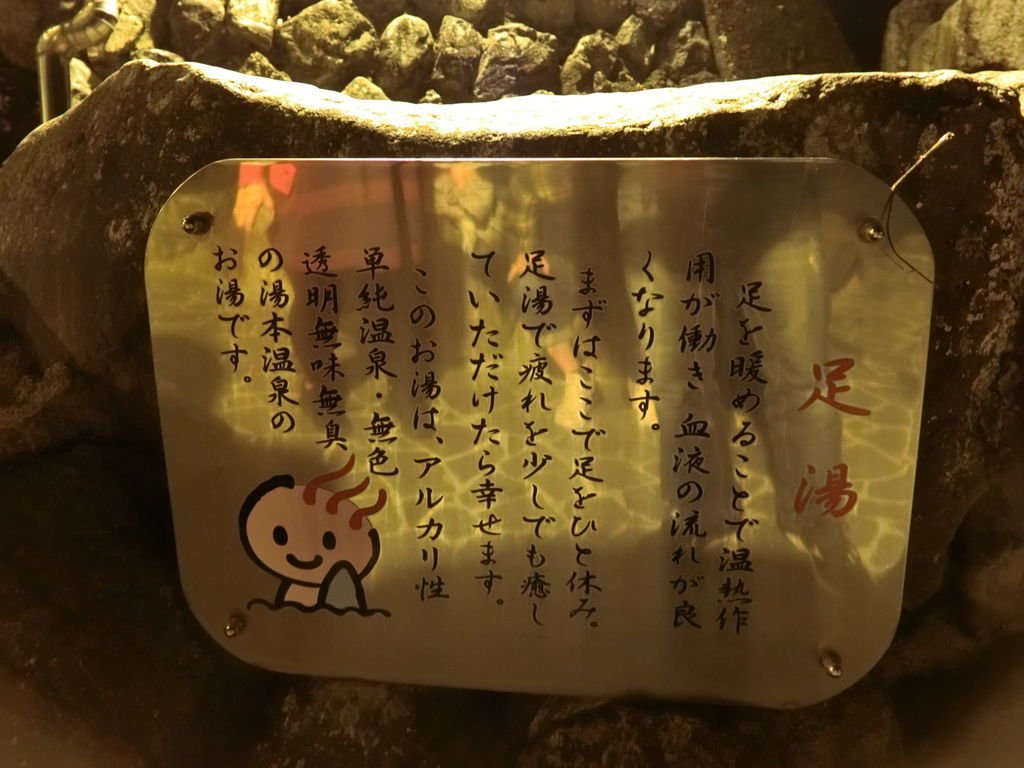 足湯
足を暖めることで温熱作
用が働き血液の流れが良
くなります。
まずはここで足をひと休み。
足湯で疲れを少しでも癒し
ていただけたら幸せます。
このお湯は、アルカリ性
単純温泉・無色
透明無味無臭
の湯本温泉の
お湯です。